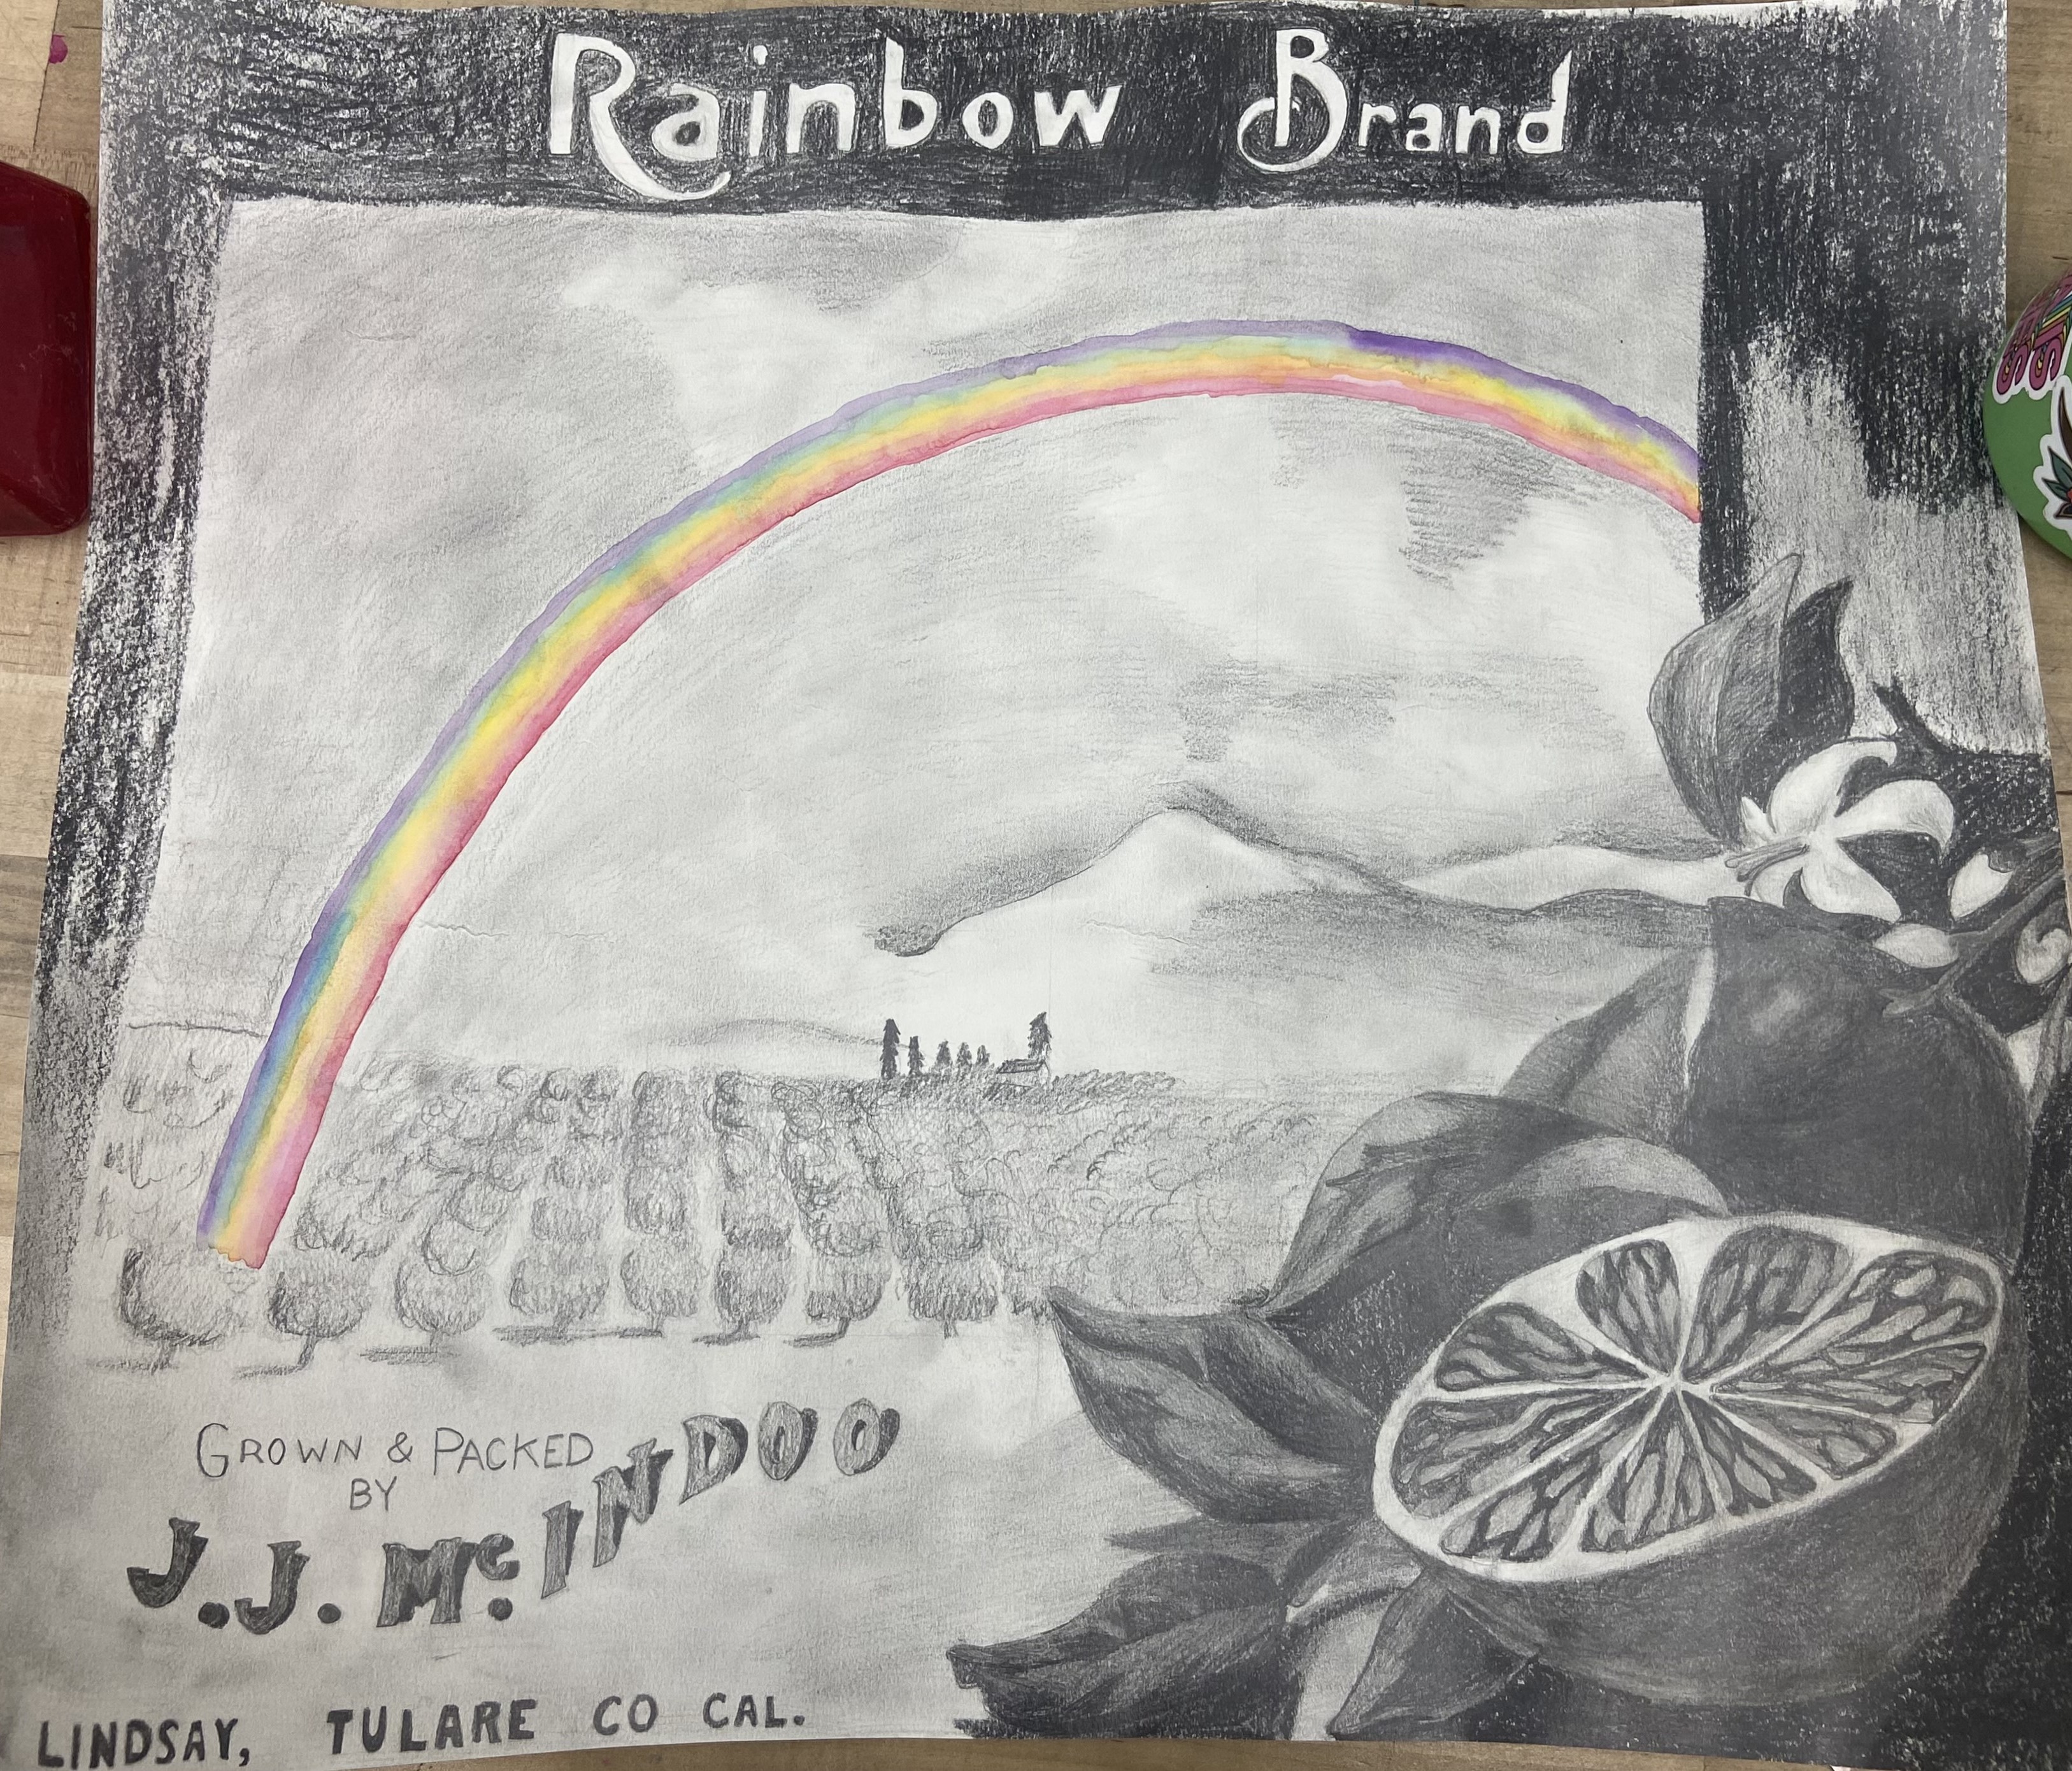 Rainbow Brand
GROWN & PACKED
BY
J.J. Mc.INDOO
LINDSAY, TULARE CO CAL.